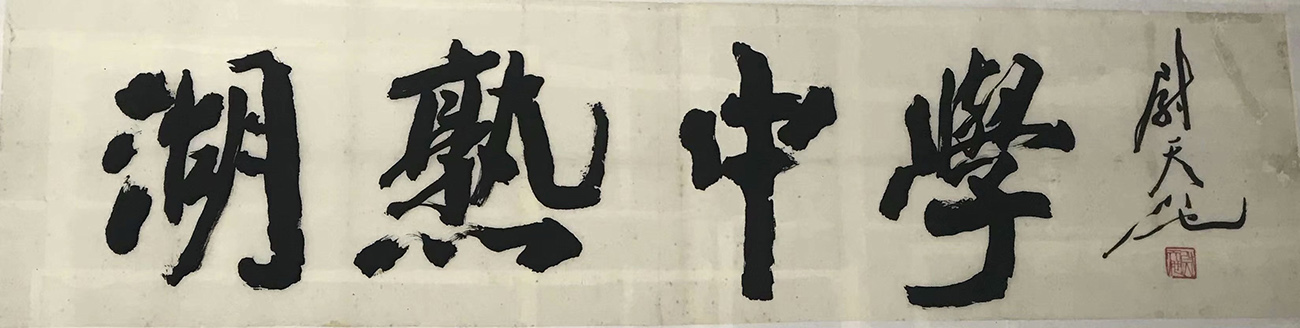 湖熟中學
尉天池